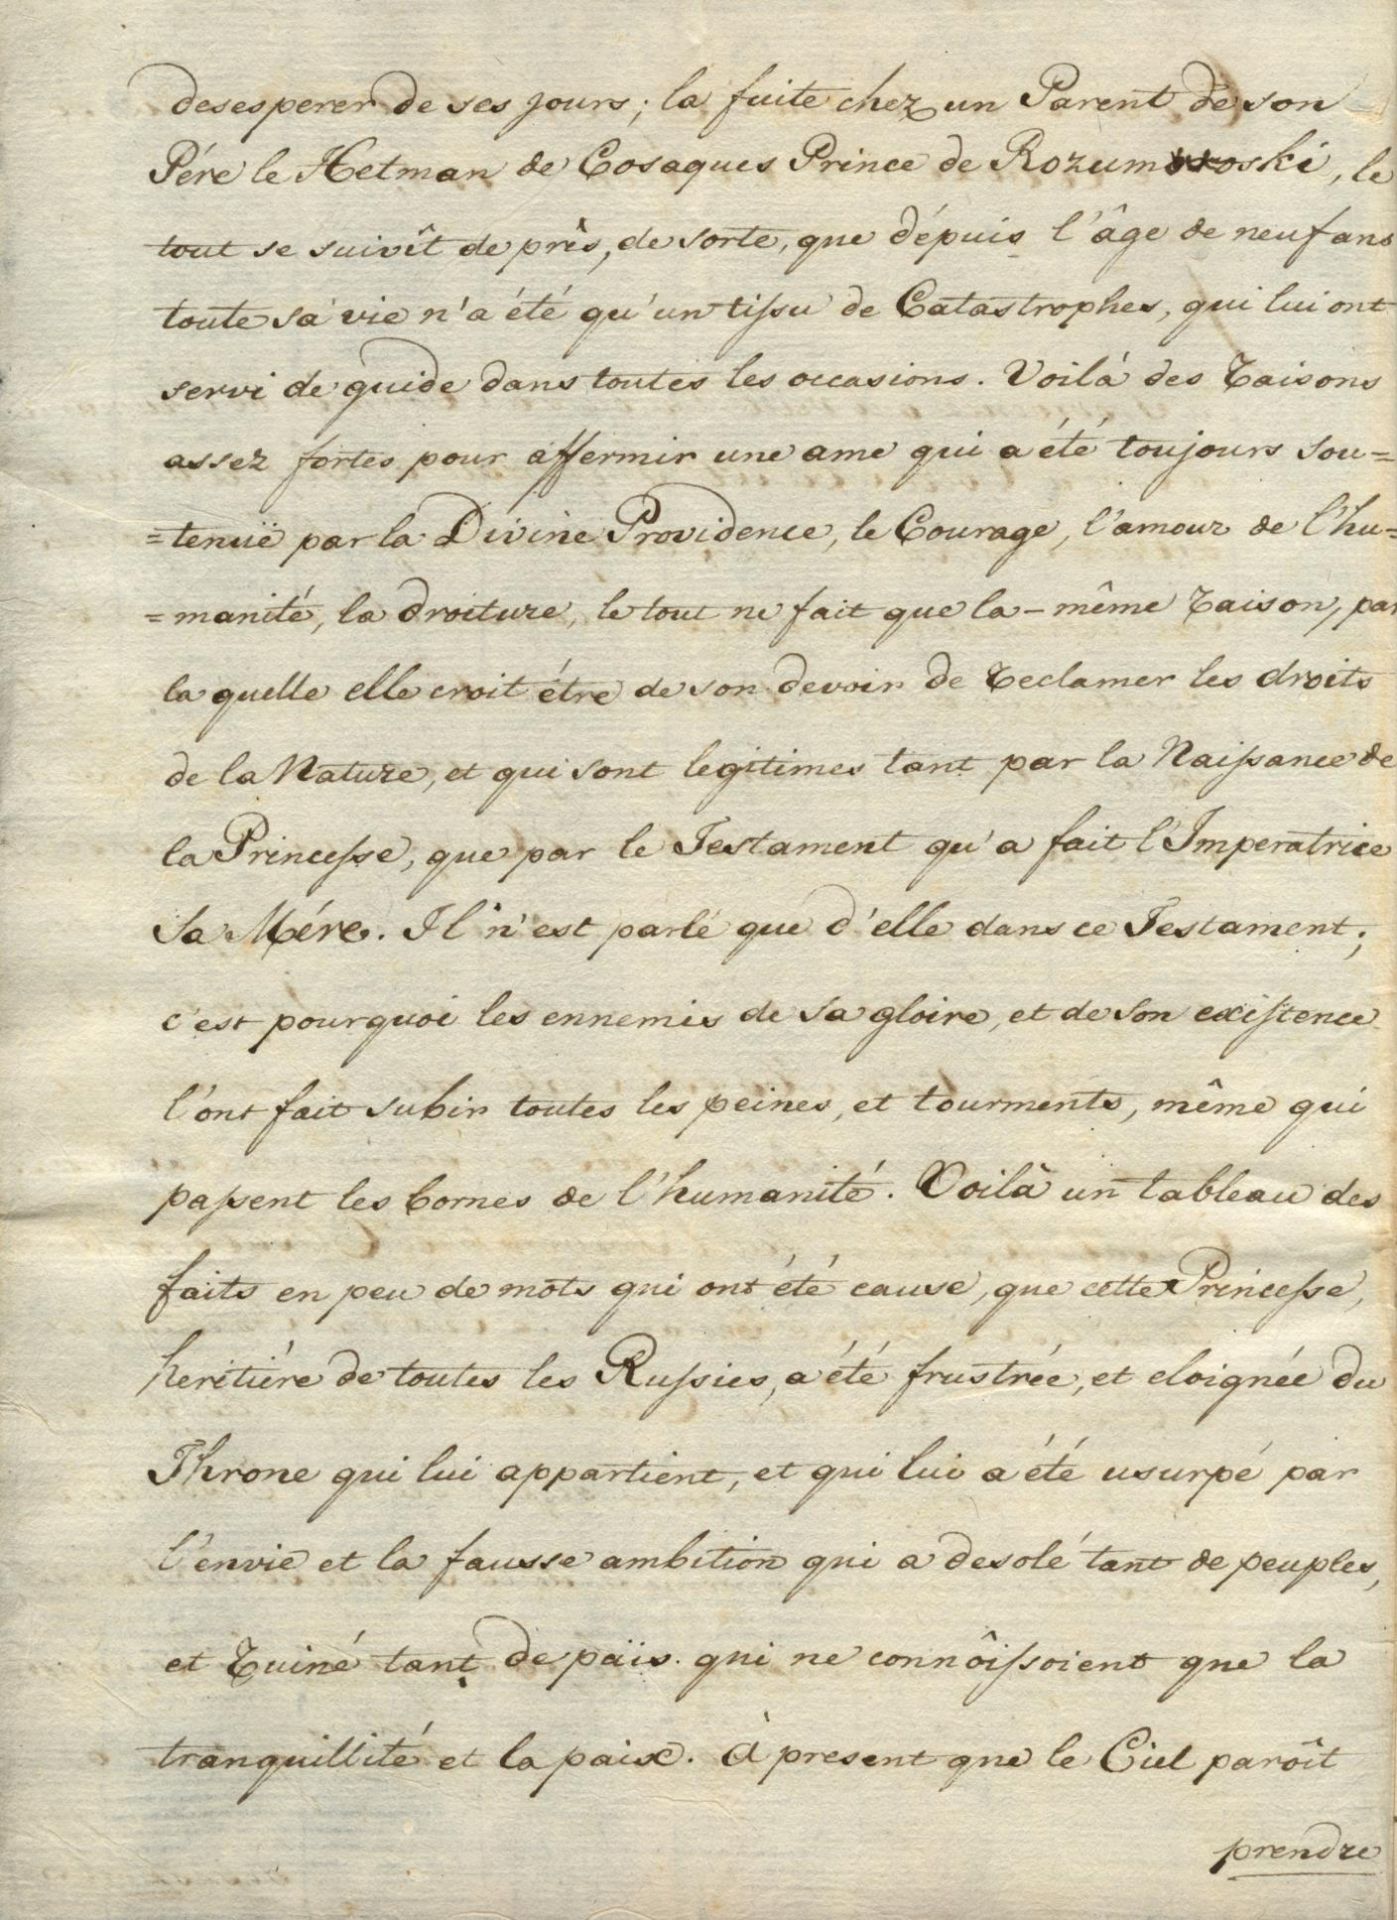 desesperer de ses jours; la fuite chez un Parent de son
Pére le Hetman de Cosaques Prince de Rozumoski, le
tout se suivît de près, de sorte, que dépuis l'âge de neuf ans
toute sa vie n'a été qu'un tissu de Catastrophes, qui lui ont
servi de guide dans toutes les occasions. Voilà des raisons
assez fortes pour affermir une ame qui a été toujours sou=
=tenuë par la Divine Providence, le Courage, l'amour de l'hu=
=manité, la droiture, le tout ne fait que la-même raison, par
la quelle elle croit étre de son devoir de reclamer les droits
de la Nature, et qui sont legitimes tant par la Naissance de
la Princesse, que par le Testament qu'a fait l'Imperatrice
sa Mére. Il n'est parlé que d'elle dans ce Testament;
c'est pourquoi les ennemis de sa gloire, et de son existence
l'ont fait subir toutes les peines, et tourments, même qui
passent les bornes de l'humanité. Voilà un tableau des
faits en peu de mots qui ont été cause, que cette Princesse,
heritiére de toutes les Russies, a été frustrée, et eloignée du
Throne qui lui appartient, et qui lui a été usurpé par
l'envie et la fausse ambition qui a desolé tant de peuples,
et ruiné tant de païs. qui ne connôissoient que la
tranquillité et la paix. à present que le Ciel parôit
prendre